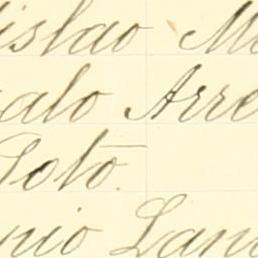 islao M
alo Arre
Soto.
nio Lan